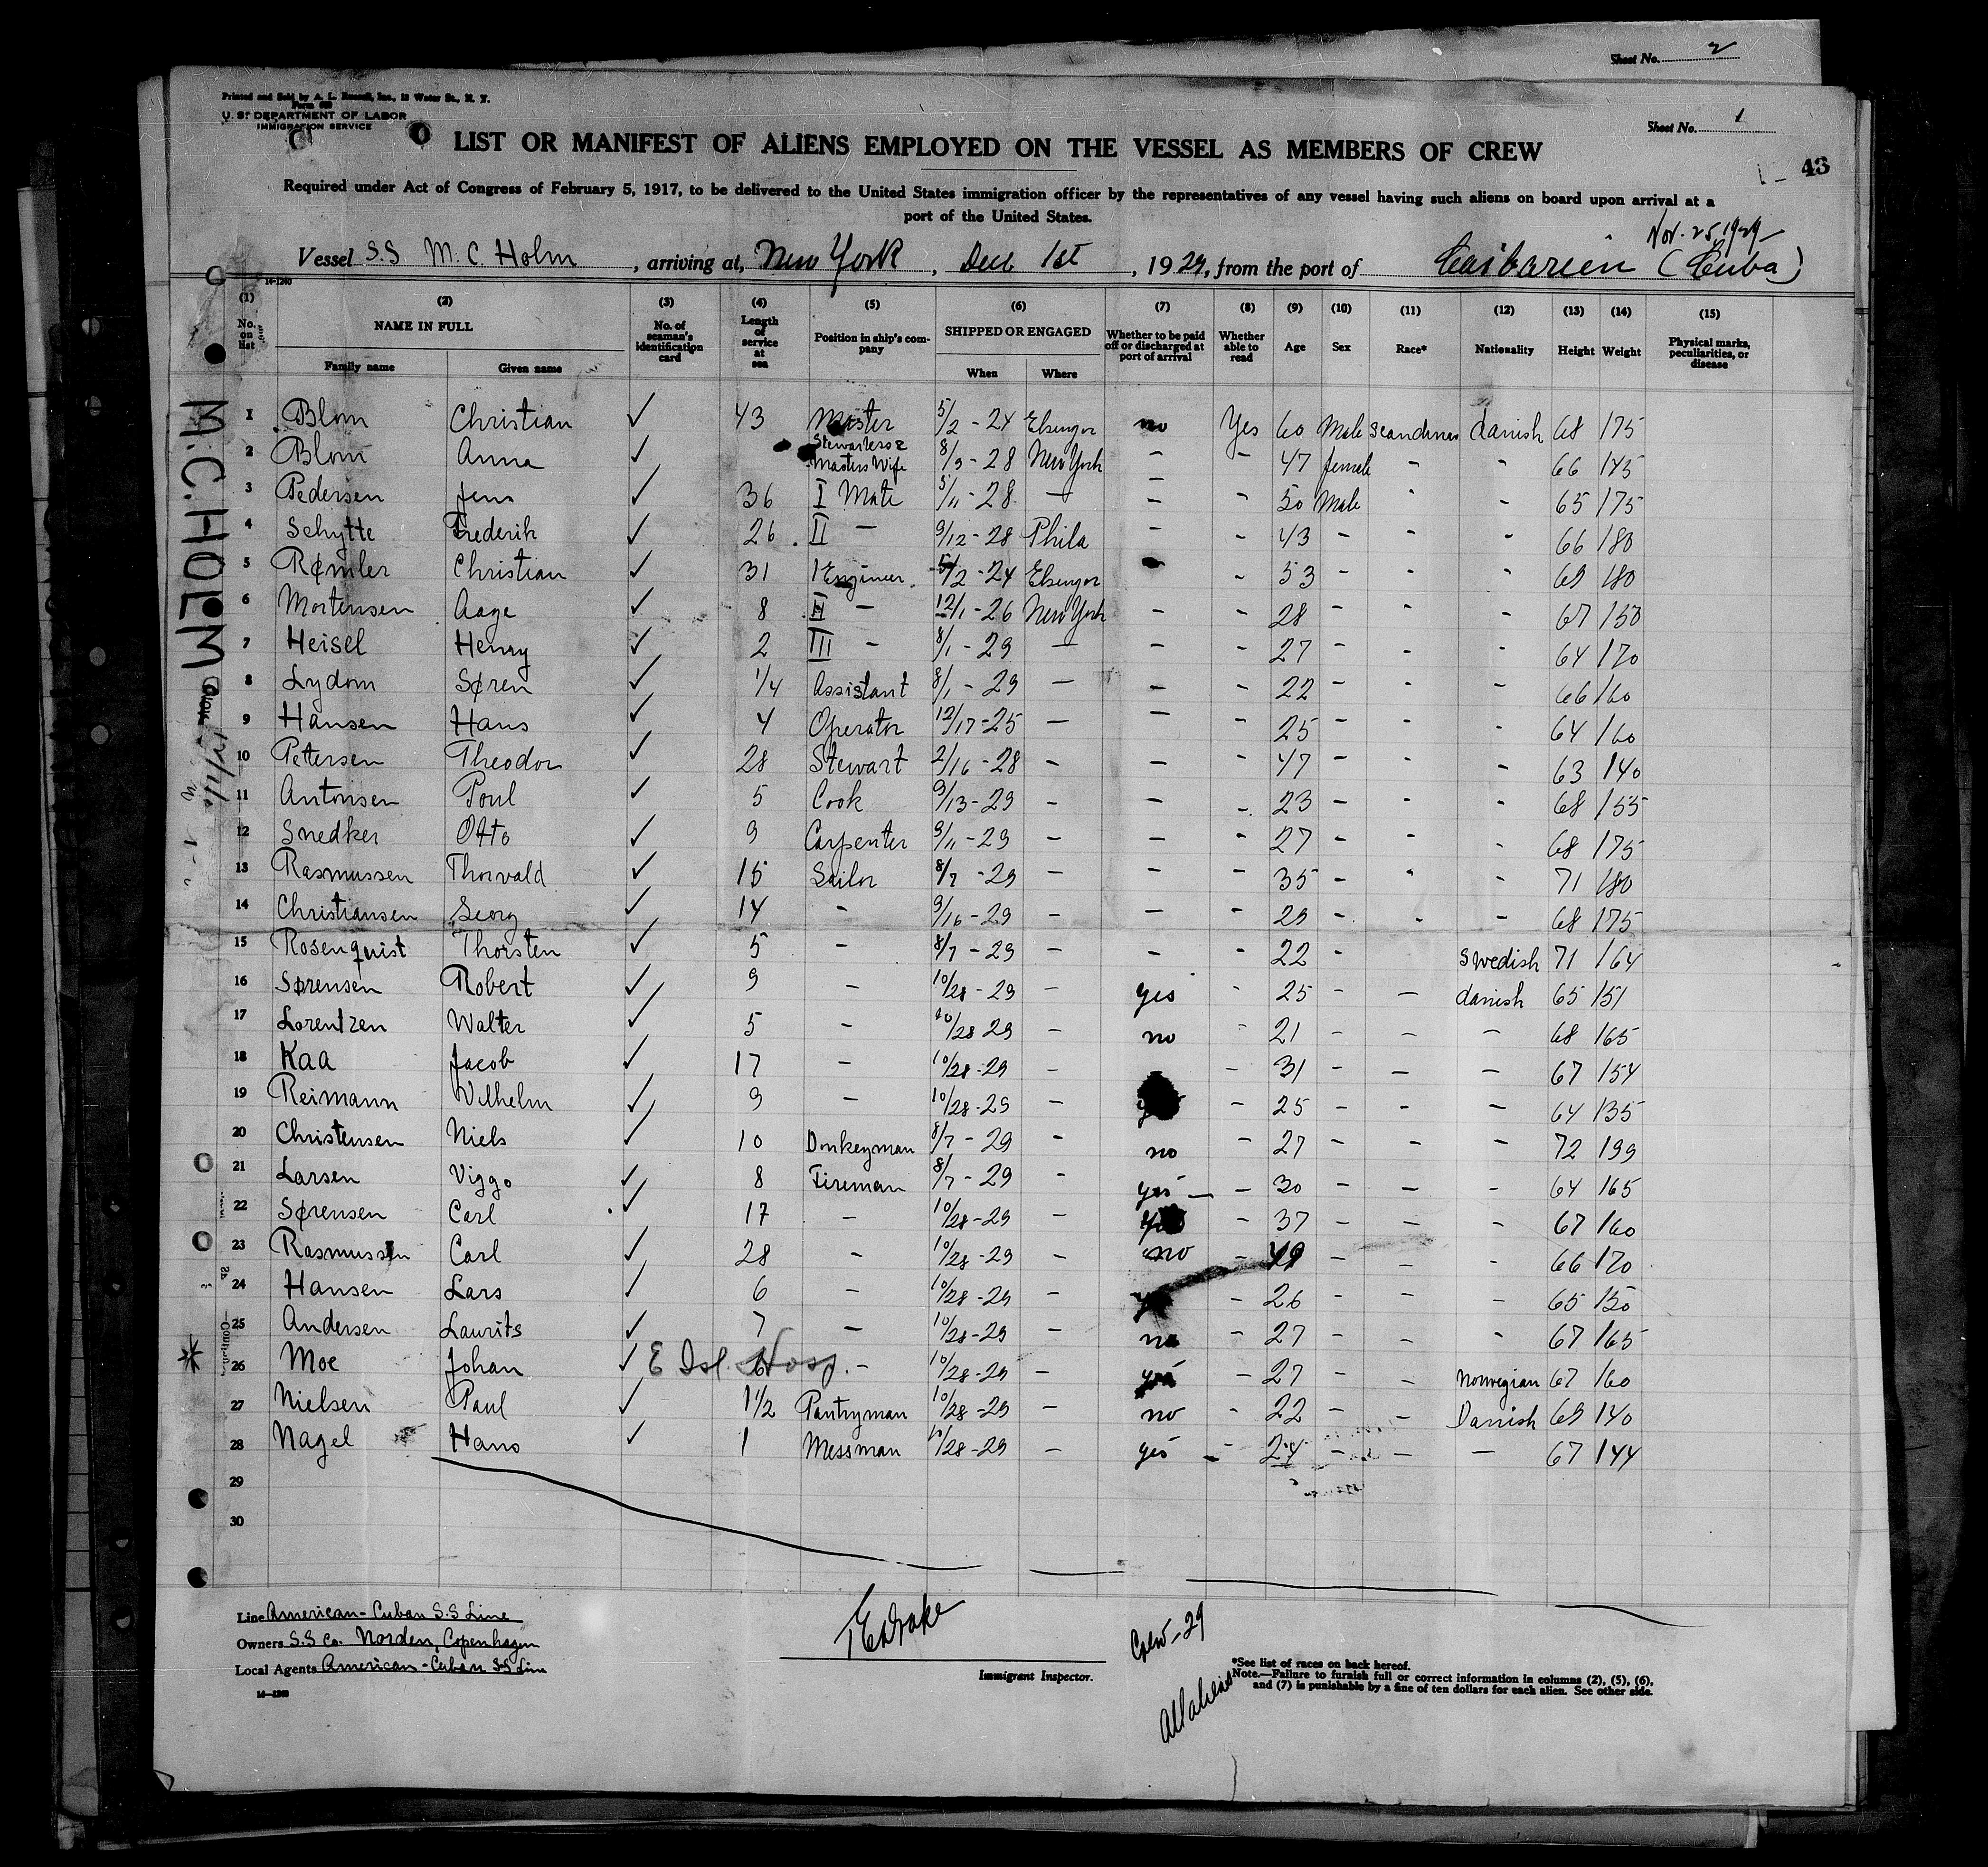 Sheet No. 2
Printed and Sold by A. L. Russell, Inc., 13 Water St., N. Y.
U. S. DEPARTMENT OF LABOR
IMMIGRATION SERVICE
Sheet No. 1
43
LIST OR MANIFEST OF ALIENS EMPLOYED ON THE VESSEL AS MEMBERS OF CREW
Required under Act of Congress of February 5, 1917, to be delivered to the United States immigration officer by the representatives of any vessel having such aliens on board upon arrival at a
port of the United States.
Nov. 25, 1929
Vessel S.S M. C. Holm, arriving at, New York, Dec 1st, 1929, from the port of Caibarien (Cuba)
14-1240
(1) (2) (3) (4) (5) (6) (7) (8) (9) (10) (11) (12) (13) (14) (15)
No. on list NAME IN FULL No. of seaman's identification card Length of service at sea Position in ship's company SHIPPED OR ENGAGED Whether to be paid off or discharged at port of arrival Whether able to read Age Sex Race* Nationality Height Weight Physical marks, peculiarities, or disease
Family name Given name When Where
1 Blom Christian ✓ 43 Master 5/2 - 24 Elsingor no Yes 60 Male Scandinav danish 68 175
2 Blom Anna ✓ Stewardess & Masters Wife 8/9 - 28 New York - - 47 female - - 66 145
3 Pedersen Jens ✓ 36 I Mate 5/11 - 28 - - - 50 Male - - 65 175
4 Schytte Frederik ✓ 26 II - 9/12 - 28 Phila - - 43 - - - 66 180
5 Rømler Christian ✓ 31 1 Engineer 5/2 - 24 Elsingor - 53 - - - 69 180
6 Mortensen Aage ✓ 8 II - 12/1 - 26 New York - - 28 - - - 67 150
7 Heisel Henry ✓ 2 III - 8/1 - 29 - - - 27 - - - 64 170
8 Lydom Søren ✓ 1/4 Assistant 8/1 - 29 - - - 22 - - - 66 160
9 Hansen Hans ✓ 4 Operator 12/17 - 25 - - - 25 - - - 64 160
10 Pettersen Theodor ✓ 28 Stewart 2/16 - 28 - - - 47 - - - 63 140
11 Antonsen Poul ✓ 5 Cook 9/13 - 29 - - - 23 - - - 68 155
12 Snedker Otto ✓ 9 Carpenter 9/11 - 29 - - - 27 - - - 68 175
13 Rasmussen Thorvald ✓ 15 Sailor 8/7 - 29 - - - 35 - - - 71 180
14 Christiansen Georg ✓ 14 - 9/16 - 29 - - - 29 - - - 68 175
15 Rosenquist Thorsten ✓ 5 - 8/7 - 29 - - - 22 - Swedish 71 164
16 Sørensen Robert ✓ 9 - 10/28 - 29 - yes - 25 - - danish 65 151
17 Lorentzen Walter ✓ 5 - 10/28 29 - no - 21 - - - 68 165
18 Kaa Jacob ✓ 17 - 10/28 - 29 - - 31 - - - 67 154
19 Reimann Vilhelm ✓ 9 - 10/28 - 29 - - 25 - - - 64 135
20 Christensen Niels ✓ 10 Donkeyman 8/7 - 29 - no - 27 - - - 72 199
21 Larsen Viggo ✓ 8 Fireman 8/7 - 29 - yes - - 30 - - - 64 165
22 Sørensen Carl ✓ 17 - 10/28 - 29 - - 37 - - - 67 160
23 Rasmussen Carl ✓ 28 - 10/28 - 29 - no - 49 - - - 66 170
24 Hansen Lars ✓ 6 - 10/28 - 29 - - 26 - - - 65 150
25 Andersen Laurits ✓ 7 - 10/28 - 29 - no - 27 - - - 67 165
26 Moe Johan ✓ E Isl. Hosp. - 10/28 - 29 - yes - 27 - - Norwegian 67 160
27 Nielsen Paul ✓ 1 1/2 Pantryman 10/28 - 29 - no - 22 - - Danish 69 140
28 Nagel Hans ✓ 1 Messman 10/28 - 29 - yes - - 24 - - - 67 144
29
30
M.C. HOLM
Line American-Cuban S.S Line
Owners S.S Co. Norden, Copenhagen
Local Agents American-Cuban SS Line
14-1240
Immigrant Inspector.
Crew-29
All aliens
*See list of races on back hereof.
Note.—Failure to furnish full or correct information in columns (2), (5), (6),
and (7) is punishable by a fine of ten dollars for each alien. See other side.